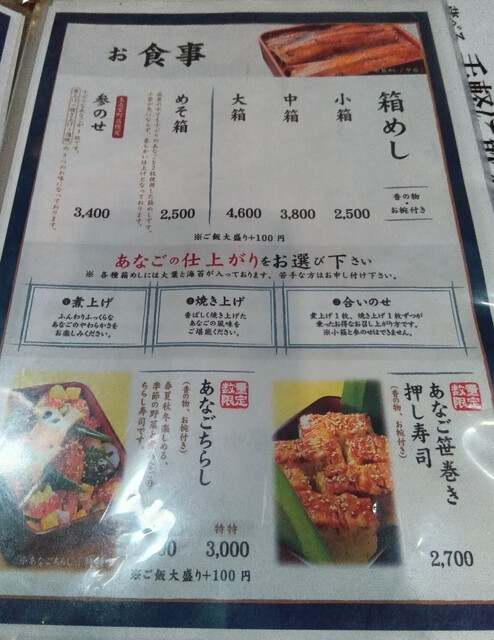 お食事
箱めし
香の物・お椀付き
小箱
2,500
中箱
3,800
大箱
4,600
めそ箱
2,500
参のせ
3,400
※ご飯大盛り+100円
あなごの仕上がりをお選び下さい
※各種箱めしには大葉と海苔が入っております。苦手な方はお申し付け下さい。
❶煮上げ
ふんわりふっくらな
あなごのやわらかさを
お楽しみください。
❷焼き上げ
香ばしく焼き上げた
あなごの風味を
ご堪能ください。
❸合いのせ
煮上げ1枚、焼き上げ1枚ずつが
乗ったお得なお召し上がり方です。
※小箱と参のせはできません。
数量限定
あなご笹巻き
押し寿司
(香の物、お椀付き)
2,700
数量限定
あなごちらし
(香の物、お椀付き)
春夏秋冬楽しめる、
季節の野菜と
ちらし寿司です。
特特
3,000
※ご飯大盛り+100円
※あなごちらし